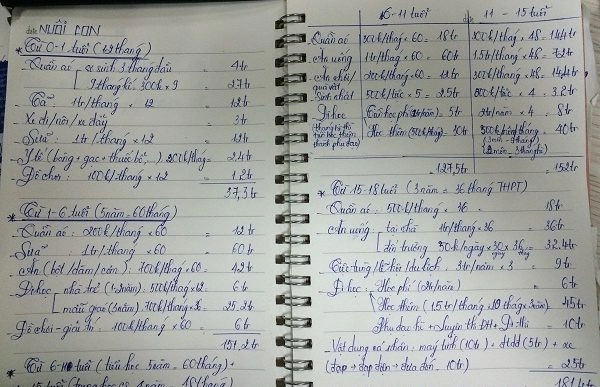 date NUÔI CON
* Từ 0-1 tuổi (12 tháng)
_ Quần áo sơ sinh 3 tháng đầu = 4tr
9 tháng kế: 300k x 9 = 2,7tr
_ Tã: 1tr/tháng x 12 = 12tr
_ Xe đi/nôi/xe đẩy = 3tr
_ Sữa: 1tr/tháng x 12 = 12tr
_ Y tế (bông + gạc + thuốc bổ...) 200k/tháng = 2.4tr
_ Đồ chơi: 100k/tháng x 12 = 1.2tr
37,3tr
* Từ 1-6 tuổi (5 năm = 60 tháng)
_ Quần áo: 200k/tháng x 60 = 12tr
_ Sữa: 1tr/tháng x 60 = 60tr
_ Ăn (bột/dặm/cơm): 700k/thág x 60 = 42tr
_ Đi học: nhà trẻ (1-2 năm) 500k/thág x 12 = 6tr
mẫu giáo (3 năm) 700k/thág x 36 = 25.2tr
_ Đồ chơi - giải trí: 100k/thág x 60 = 6tr
151,2tr
* Từ 6-11 tuổi (tiểu học 5 năm = 60 tháng) +
15 tuổi (trung học cs 4 năm = 48 tháng)
date 6-11 tuổi 11-15 tuổi
Quần áo 300k/thág x 60 = 18tr 300k/thág x 48 = 14,4tr
Ăn uống 1tr/thág x 60 = 60tr 1.5tr/thág x 48 = 72tr
Ăn chơi/quà vặt 200k/thág x 60 = 12tr 300k/thág x 48 = 14,4tr
Sinh nhật 500k/lúc x 5 = 2.5tr 800k x 4 = 3.2tr
Đi học Tiểu học phí = 5tr 2tr/năm x 4 = 8tr
Học thêm (500k/thág) 30tr 40tr
127,5tr = 152tr
* Từ 15-18 tuổi (3 năm = 36 tháng THPT)
_ Quần áo: 500k/thág x 36 18tr
_ Ăn uống: tại nhà 1tr/thág x 36 = 36tr
đến trường 30k/ngày x 30 ngày x 36 thág = 32.4tr
_ Tiệc tùng/lễ hội/du lịch: 3tr/năm x 3 = 9tr
_ Đi học: Học phí (2tr/năm) = 6tr
Học thêm (1.5tr/tháng x 10 tháng x 3 năm) 45tr
Phụ đạo hè + Luyện thi ĐH + Đi thi = 10tr
_ Vật dụng cá nhân: máy tính (10tr) + đtdđ (5tr) + xe
(đạp → đạp điện → chứa điên: 10tr) = 25tr
181.4tr